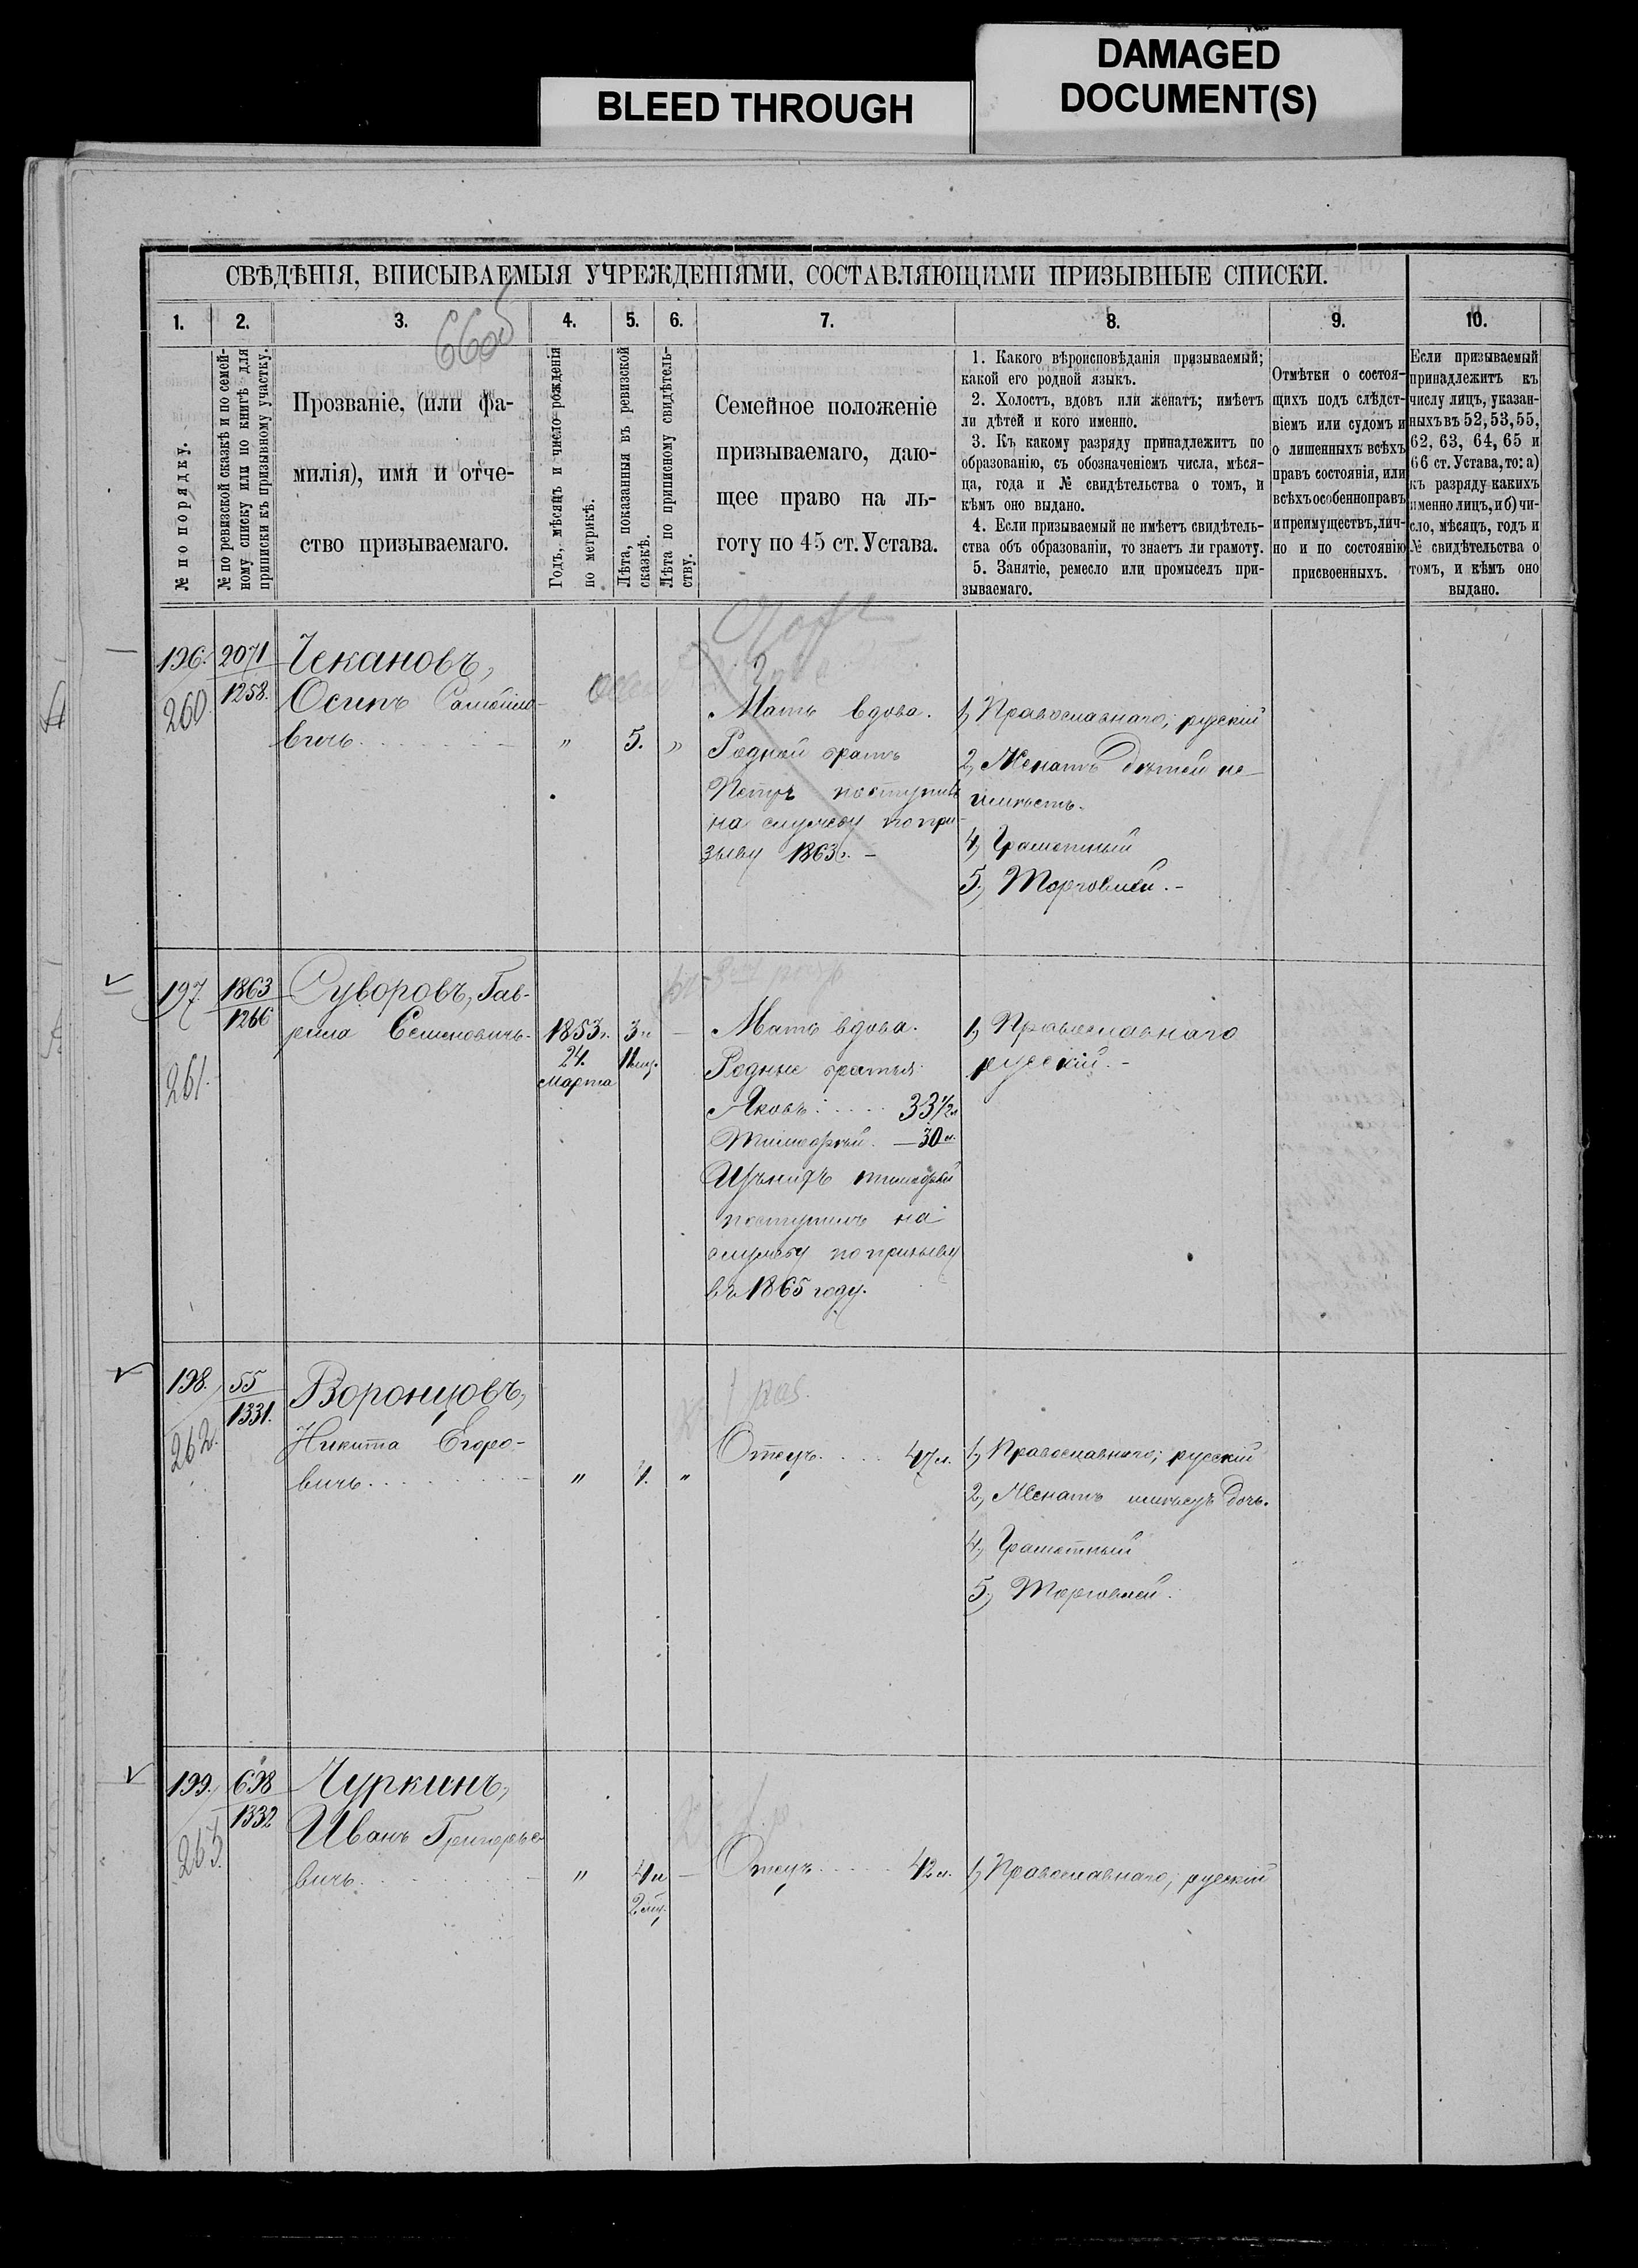 DAMAGED
DOCUMENT(S)
BLEED THROUGH
СВѢДѢНІЯ, ВПИСЫВАЕМЫЯ УЧРЕЖДЕНІЯМИ, СОСТАВЛЯЮЩИМИ ПРИЗЫВНЫЕ СПИСКИ.
1. 2. 3. 4. 5. 6. 7. 8. 9. 10.
№ по порядку.
№ по ревизской сказкѣ и по семей-
ному списку или по книгѣ для
приписки къ призывному участку.
Прозваніе, (или фа-
милія), имя и отче-
ство призываемаго.
Годъ, мѣсяцъ и число рожденія
по метрикѣ.
Лѣта, показанныя въ ревизской
сказкѣ.
Лѣта по приписному свидѣтель-
ству.
Семейное положеніе
призываемаго, даю-
щее право на ль-
готу по 45 ст. Устава.
1. Какого вѣроисповѣданія призываемый;
какой его родной языкъ.
2. Холостъ, вдовъ или женатъ; имѣетъ
ли дѣтей и кого именно.
3. Къ какому разряду принадлежитъ по
образованію, съ обозначеніемъ числа, мѣся-
ца, года и № свидѣтельства о томъ, и
кѣмъ оно выдано.
4. Если призываемый не имѣетъ свидѣтель-
ства объ образованіи, то знаетъ ли грамоту.
5. Занятіе, ремесло или промыселъ при-
зываемаго.
Отмѣтки о состоя-
щихъ подъ слѣдст-
віемъ или судомъ и
о лишенныхъ всѣхъ
правъ состоянія, или
всѣхъ особенно правъ
и преимуществъ, лич-
но и по состоянію
присвоенныхъ.
Если призываемый
принадлежитъ къ
числу лицъ, указан-
ныхъ въ 52, 53, 55,
62, 63, 64, 65 и
66 ст. Устава, то: а)
къ разряду какихъ
именно лицъ, и б) чи-
сло, мѣсяцъ, годъ и
№ свидѣтельства о
томъ, и кѣмъ оно
выдано.
196.
260
2071
1258.
Чекановъ,
Осипъ Самойло-
вичъ
" 5. "
Мать вдова.
Родной братъ
Петръ поступилъ
на службу по при-
зыву 1863 г. -
1, Православнаго; русскій
2, Женатъ дѣтей не-
имѣетъ.
4, Грамотный
5, Торговлей. -
197.
261.
1863
1266
Суворовъ, Гав-
рила Семеновичъ.
1853 г.
24.
Марта
3 л
11 мц.
Мать вдова.
Родные братья
Яковъ 33 1/2 л
Тимофей. — 30 л.
Изъ нихъ Тимофей
поступилъ на
службу по призыву
въ 1865 году.
1, Православнаго
русскій. -
198.
262.
55
1331.
Воронцовъ,
Никита Егоро-
вичъ
" 4. "
Отецъ 47 л.
1, Православнаго; русскій
2, Женатъ имѣетъ дочь.
4, Грамотный
5, Торговлей.
199.
263.
698
1332
Чуркинъ,
Иванъ Григорье-
вичъ
" 4 л
2 мц.
Отецъ 42 л.
1, Православнаго, русскій